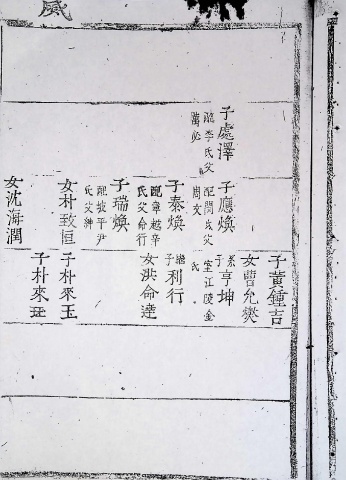 子處澤
配李氏父
萬必
子應煥
配閔氏父
周文
子泰煥
配韋越辛
氏父命行
子瑞煥
配坡平尹
氏父紳
女朴致恒
女沈海潤
子黃鍾吉
女曹允燮
系子亨坤
室江陵金
氏
繼子利行
女洪命達
子朴來玉
子朴來